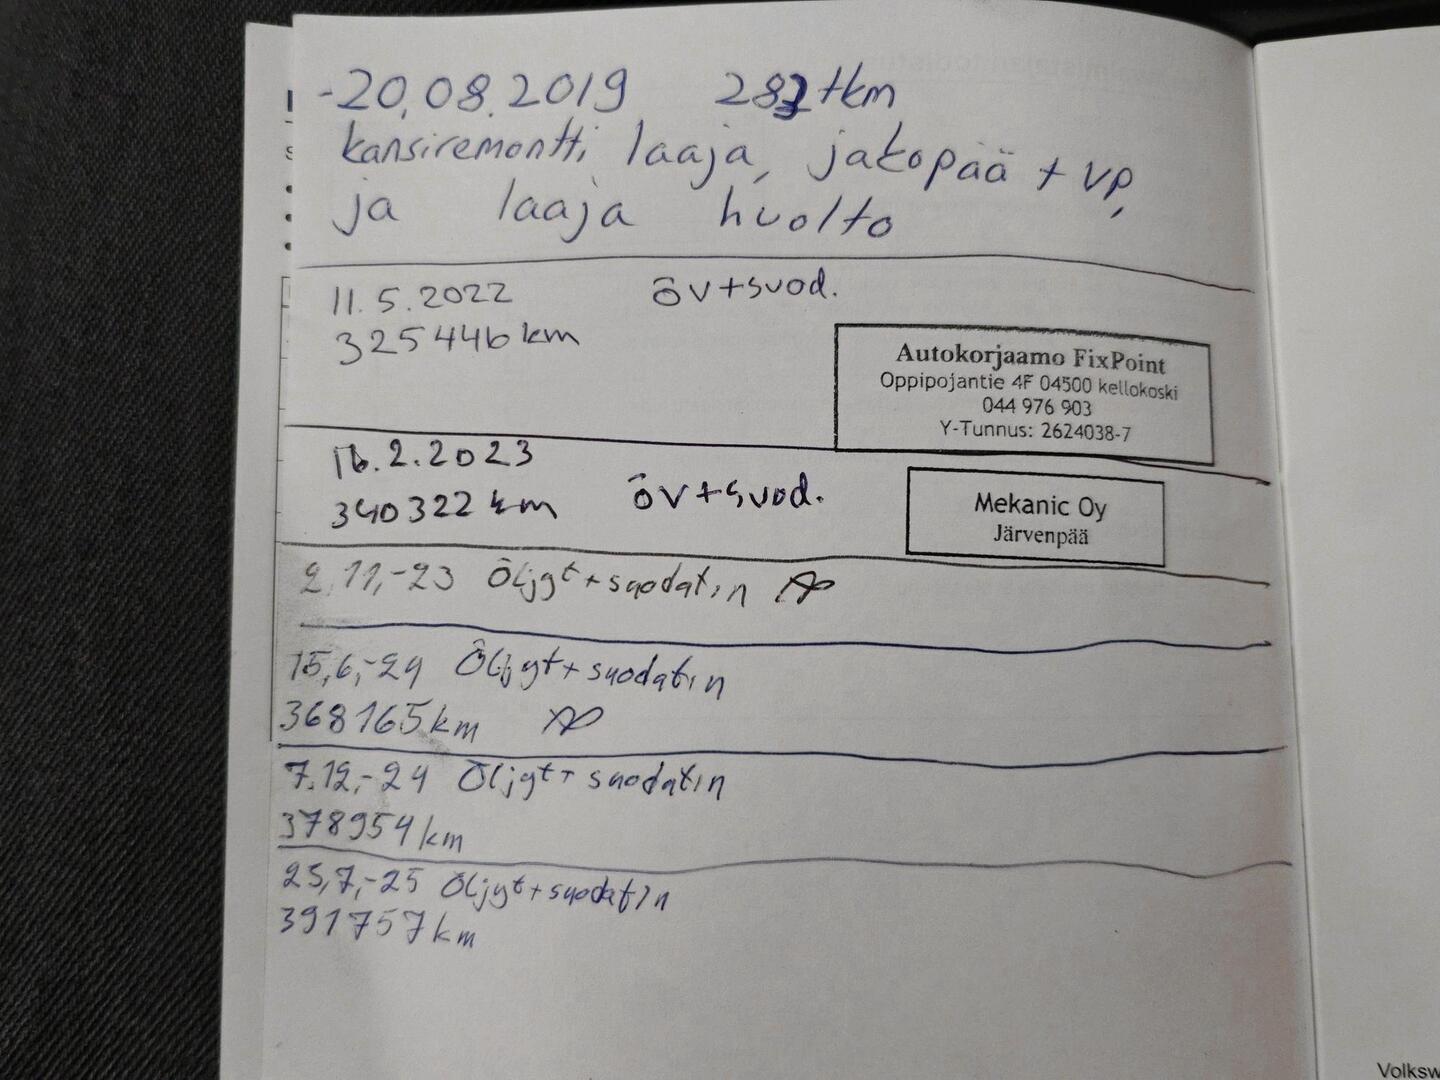 -20,08.2019 282 tkm
kansiremontti laaja, jakopää + VP,
ja laaja huolto
11.5.2022 öv+suod.
325446 km
Autokorjaamo FixPoint
Oppipojantie 4F 04500 kellokoski
044 976 903
Y-Tunnus: 2624038-7
16.2.2023
340322 km öv+suod.
Mekanic Oy
Järvenpää
2,11,-23 Öljyt+suodatin
15,6,-24 Öljyt+suodatin
368165 km
7.12,-24 Öljyt+suodatin
378954 km
25,7,-25 Öljyt+suodatin
391757 km
Volksw